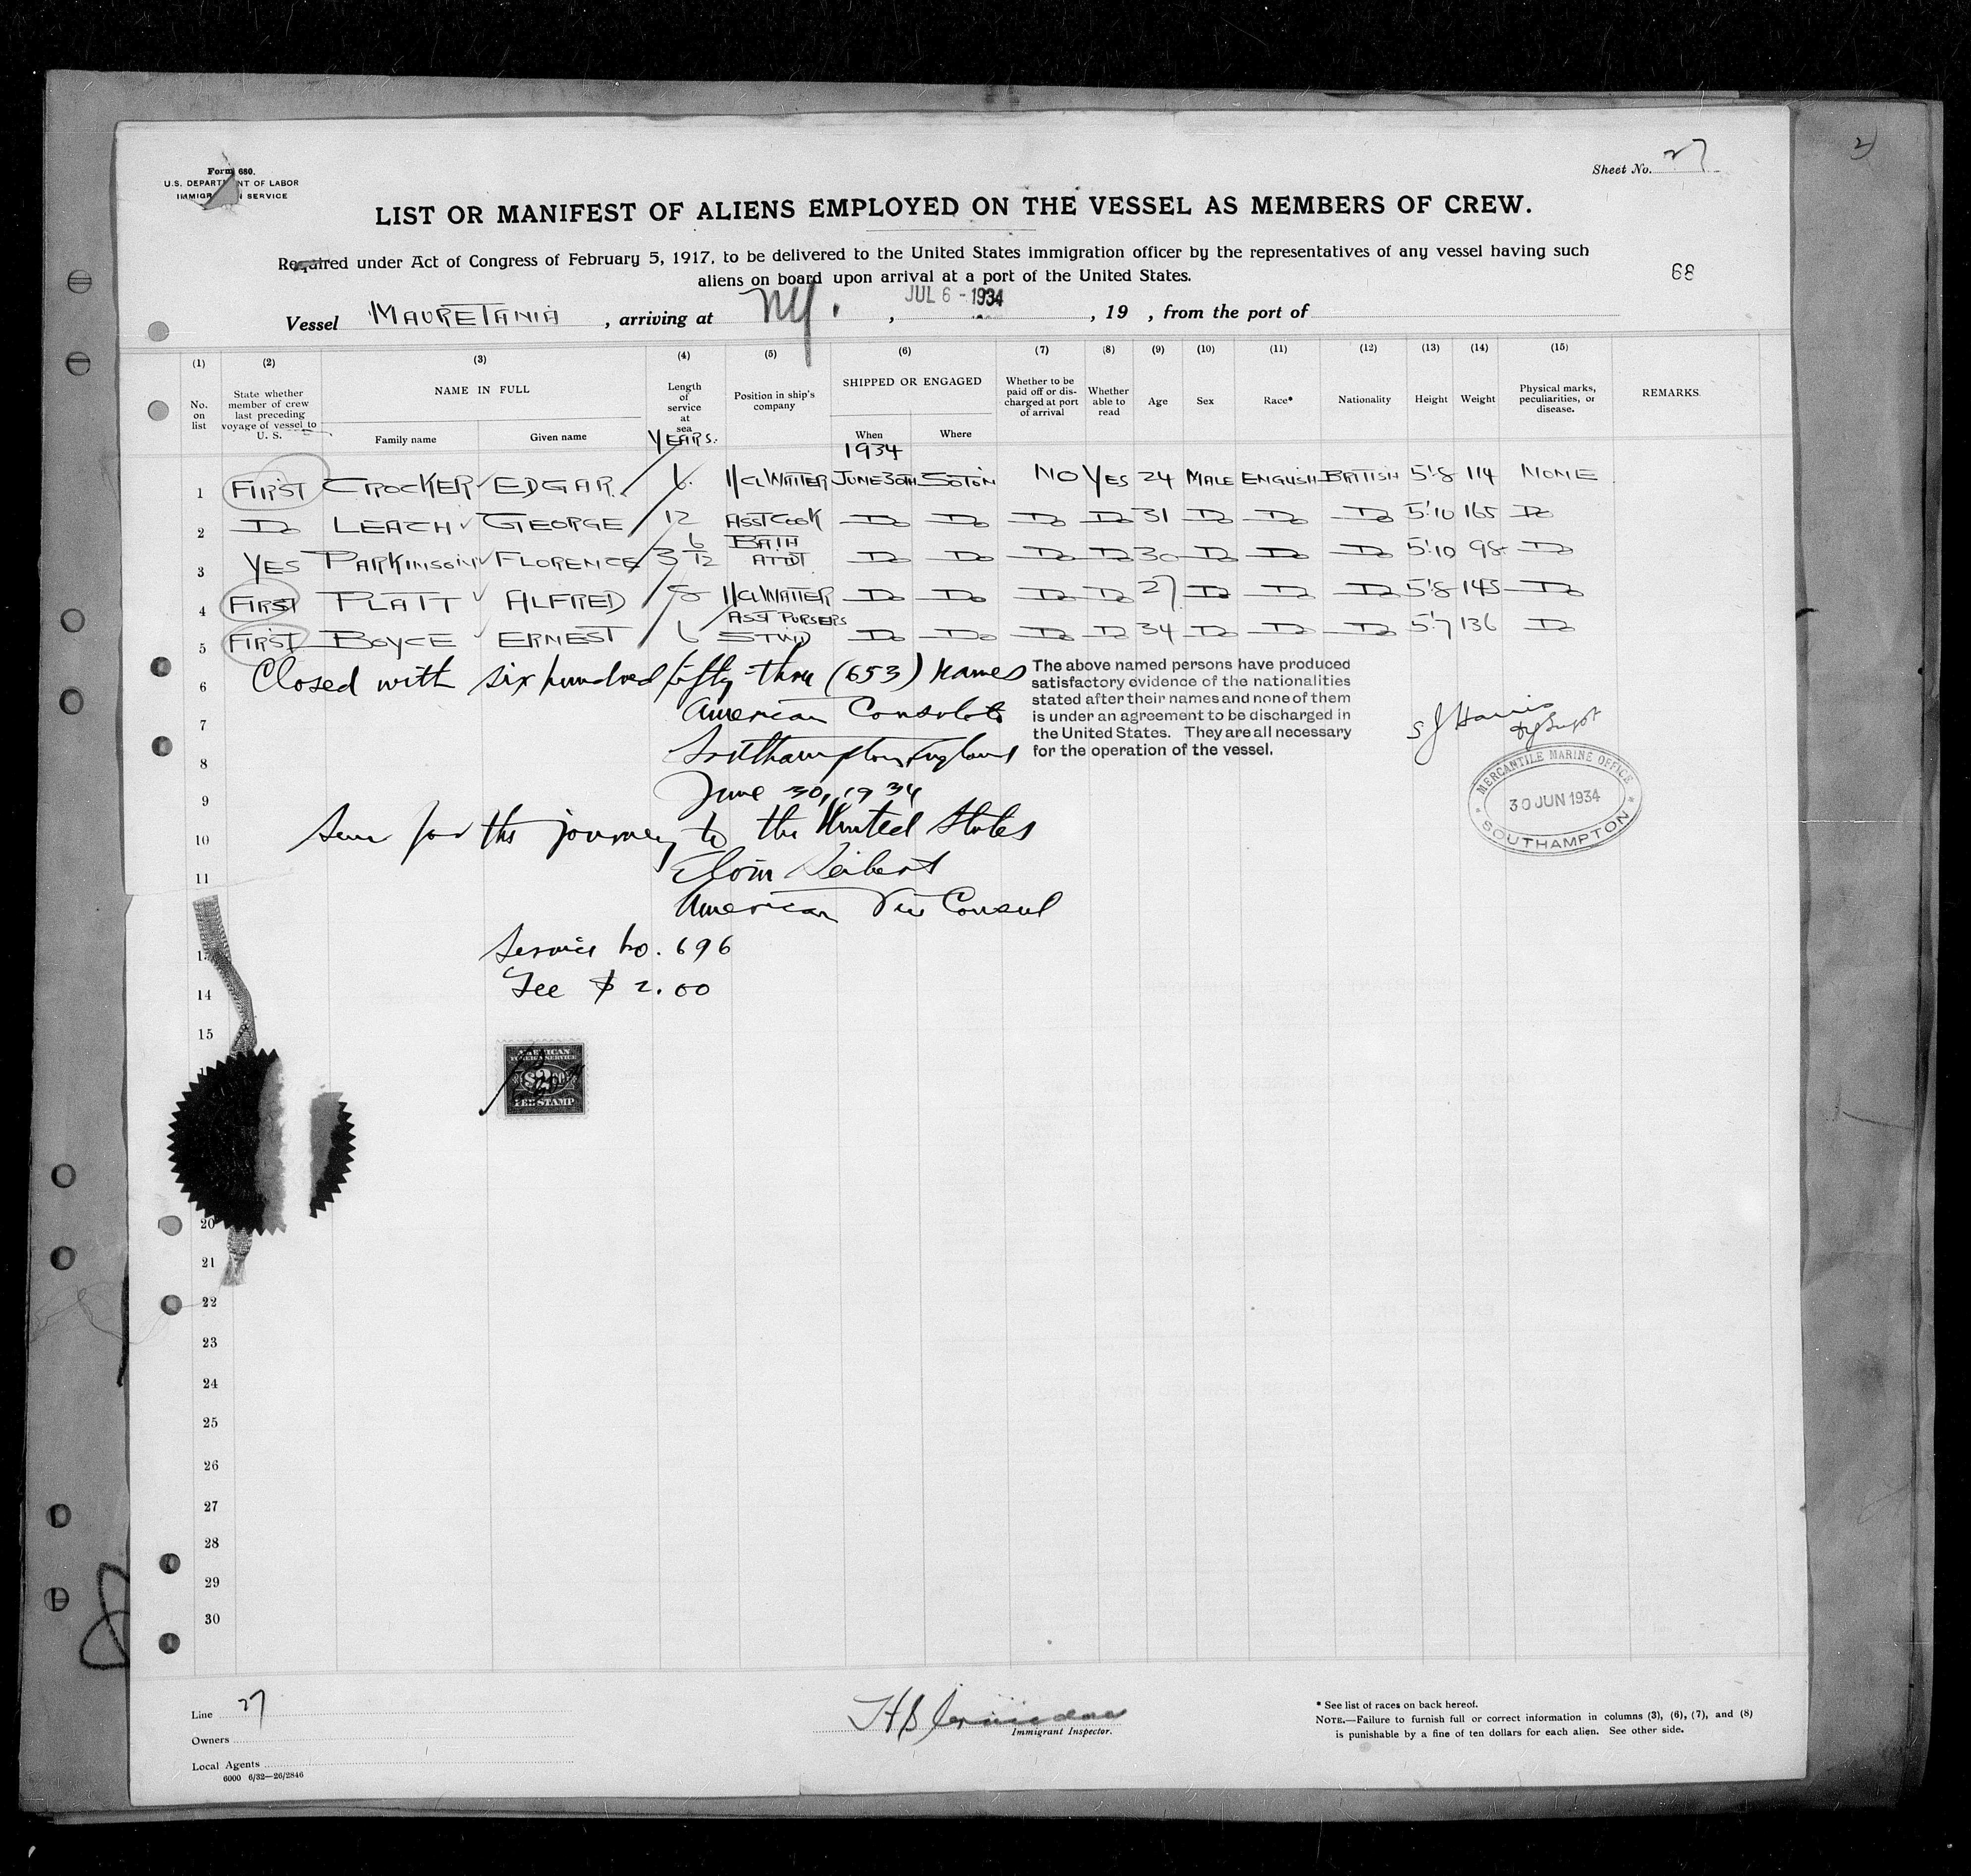 Form 680.
U.S. DEPARTMENT OF LABOR
IMMIGRATION SERVICE
Sheet No. 27
2)
LIST OR MANIFEST OF ALIENS EMPLOYED ON THE VESSEL AS MEMBERS OF CREW.
Required under Act of Congress of February 5, 1917, to be delivered to the United States immigration officer by the representatives of any vessel having such
aliens on board upon arrival at a port of the United States.
68
Vessel MAURETANIA, arriving at NY., JUL 6 - 1934, 19 , from the port of
(1) (2) (3) (4) (5) (6) (7) (8) (9) (10) (11) (12) (13) (14) (15)
No. on list
State whether member of crew last preceding voyage of vessel to U. S.
NAME IN FULL
Family name
Given name
Length of service at sea
YEARS.
Position in ship's company
SHIPPED OR ENGAGED
When
1934
Where
Whether to be paid off or discharged at port of arrival
Whether able to read
Age
Sex
Race*
Nationality
Height
Weight
Physical marks, peculiarities, or disease.
REMARKS
1 FIRST CROCKER EDGAR 6. 1/CL WAITER JUNE 30TH SOTON NO YES 24 MALE ENGLISH BRITISH 5'.8 114 NONE
2 Do LEACH GEORGE 12 ASST COOK Do Do Do Do 31 Do Do Do 5'.10 165 Do
3 YES PARKINSON FLORENCE 3 6/12 BATH ATTDT. Do Do Do Do 30 Do Do Do 5'.10 98 Do
4 FIRST PLATT ALFRED 8 1/CL WAITER Do Do Do Do 27 Do Do Do 5'.8 145 Do
5 FIRST BOYCE ERNEST 6 ASST PURSERS STWD Do Do Do Do 34 Do Do Do 5'.7 136 Do
6 Closed with six hundred fifty-three (653) names
7 American Consulate
8 Southampton, England
9 June 30, 1934
10 Seen for the journey to the United States
11 Seibert
American Vice Consul
The above named persons have produced
satisfactory evidence of the nationalities
stated after their names and none of them
is under an agreement to be discharged in
the United States. They are all necessary
for the operation of the vessel.
S J Harris
Dy Supt
MERCANTILE MARINE OFFICE
30 JUN 1934
SOUTHAMPTON
13 Service No. 696
14 Fee $ 2.00
15
AMERICAN
FOREIGN SERVICE
$2.00
FEE STAMP
20
21
22
23
24
25
26
27
28
29
30
Line 27
Owners
Local Agents
6000 6/32—26/2846
Immigrant Inspector.
* See list of races on back hereof.
NOTE.—Failure to furnish full or correct information in columns (3), (6), (7), and (8)
is punishable by a fine of ten dollars for each alien. See other side.